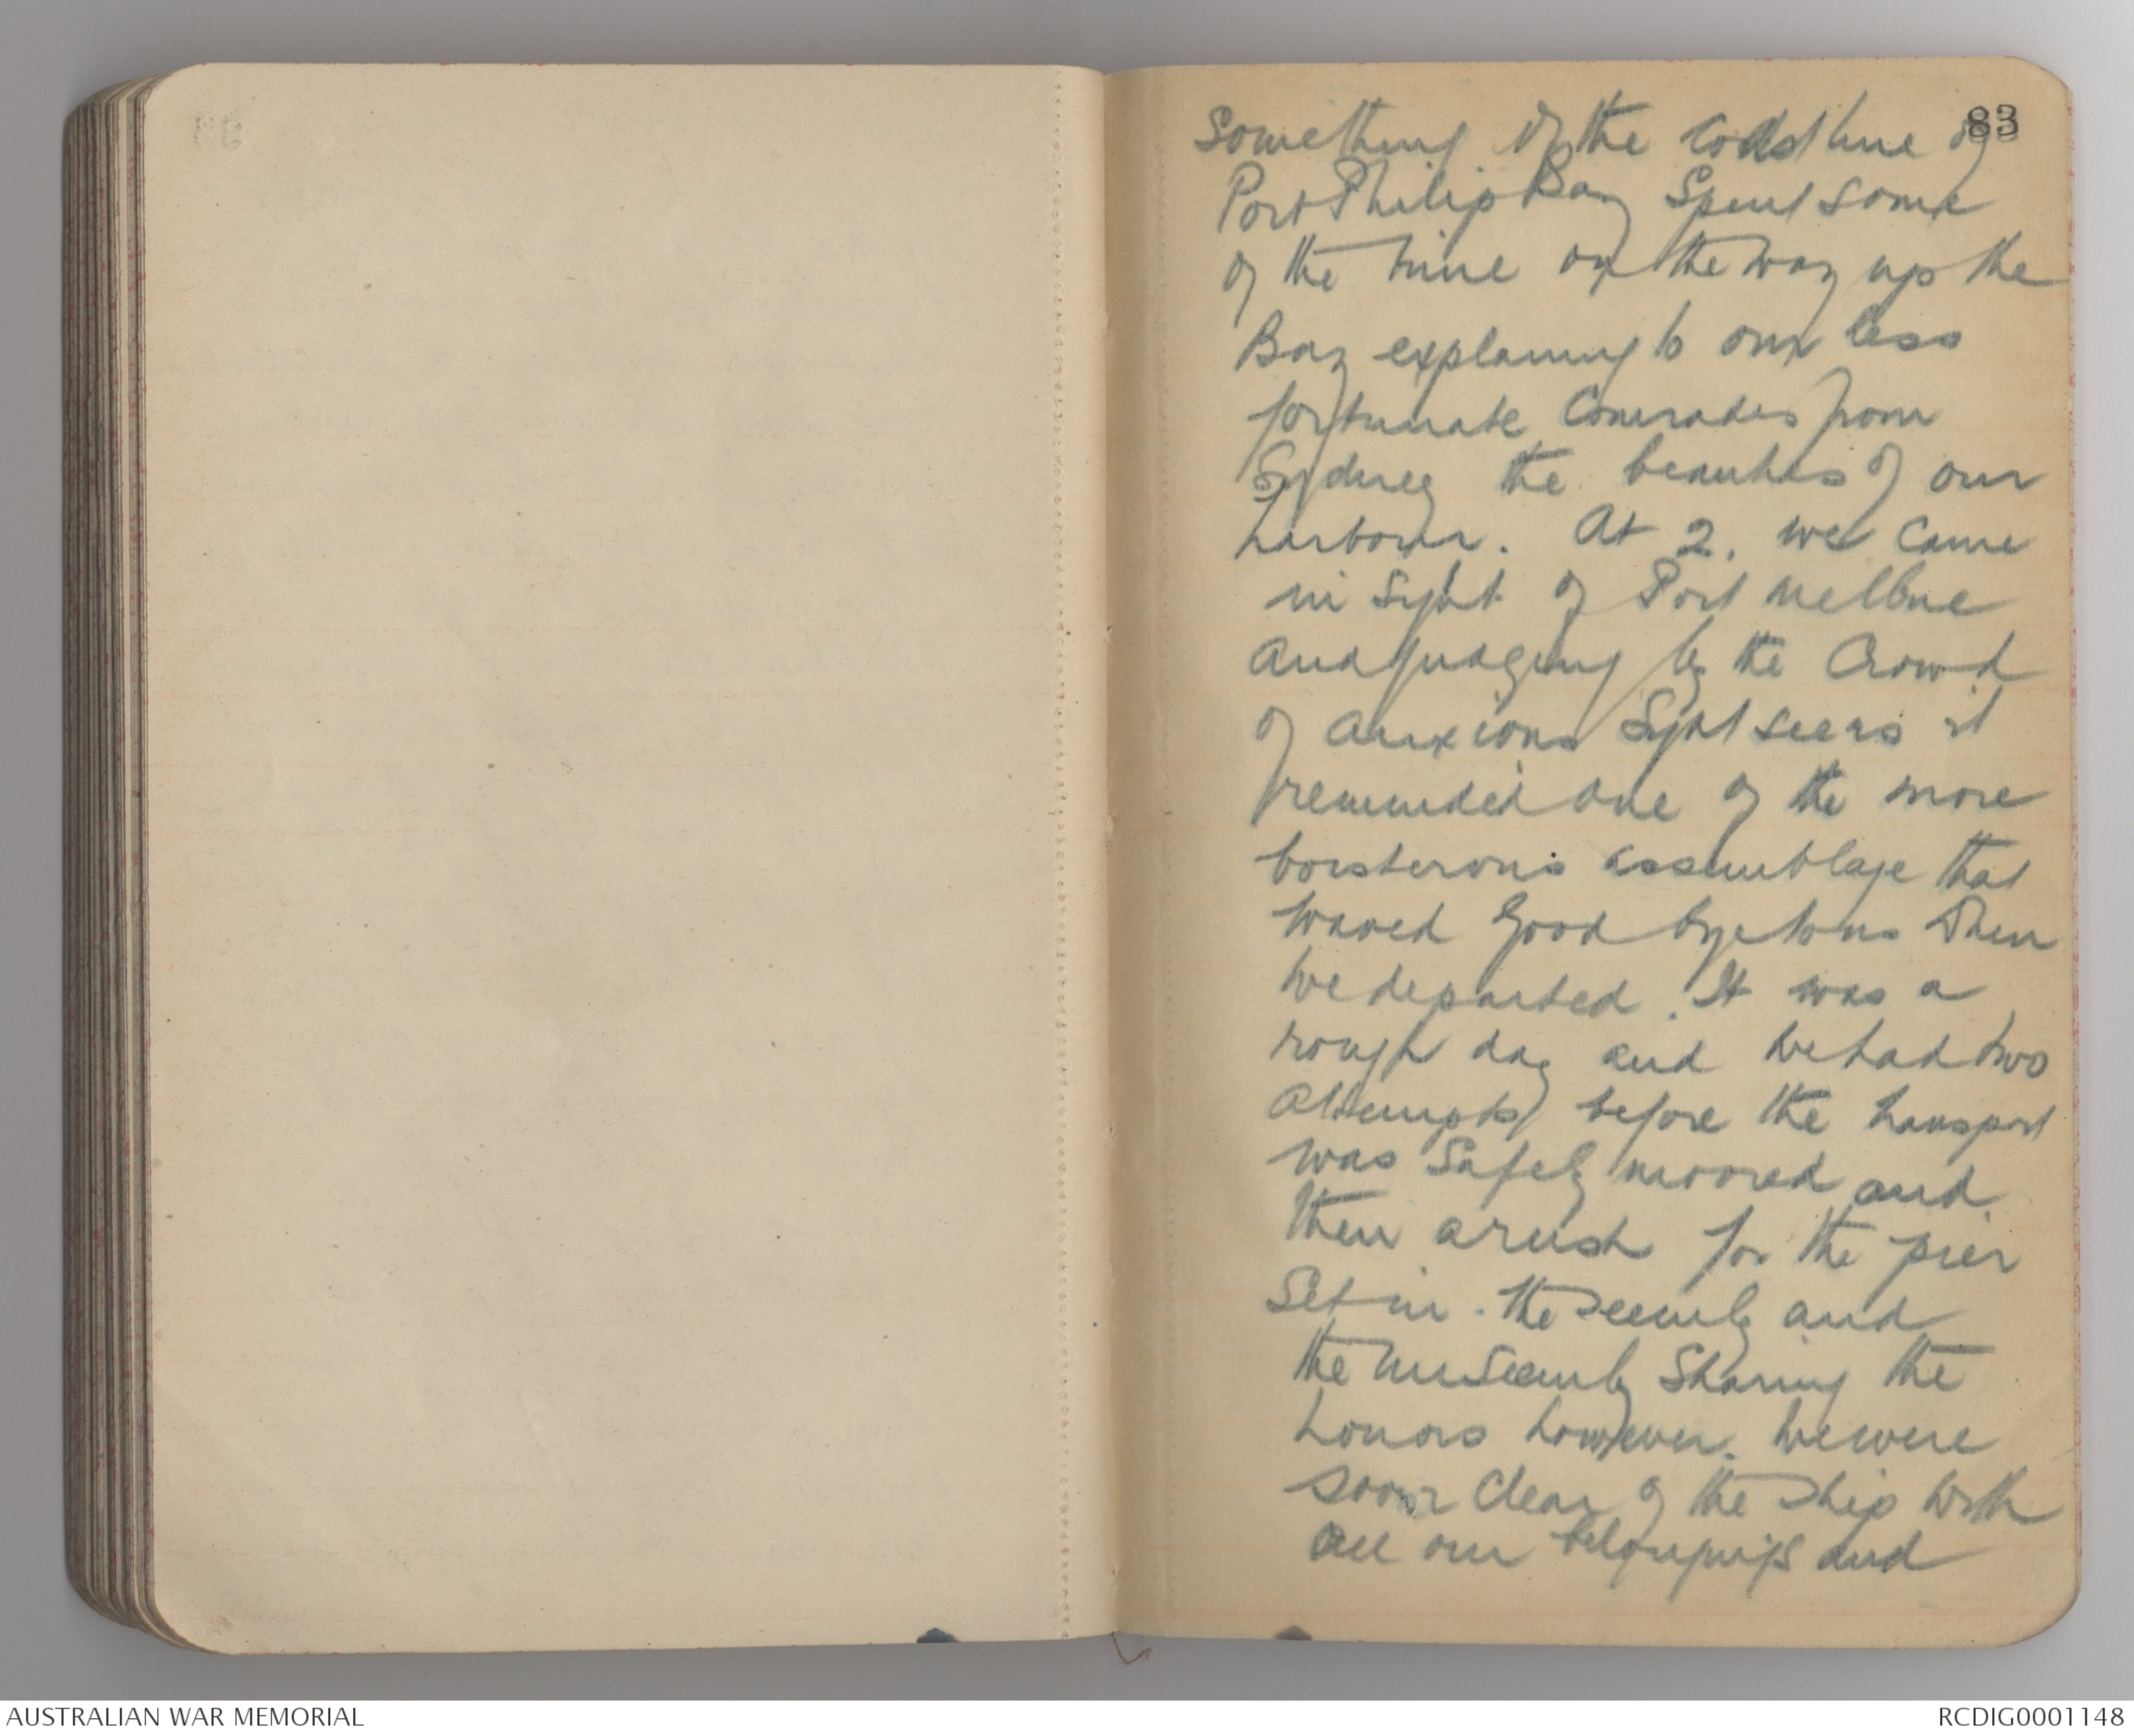 83
Something of the coastline of
Port Philip Bay Spent some
of the time on the way up the
Bay explaining to our less
fortunate Comrades from
Sydney the beauties of our
harbour. At 2. we came
in sight of Port Melbne
And judging by the Crowd
of anxious Sightseers it
reminded one of the more
boisterous assemblage that
waved Good bye to us When
we departed. It was a
rough day and we had two
Attempts before the transport
was Safely moored and
then a rush for the pier
Set in. the Seemly and
the unseemly Sharing the
honors however. We were
soon Clear of the Ship with
all our belongings and
AUSTRALIAN WAR MEMORIAL
RCDIG0001148